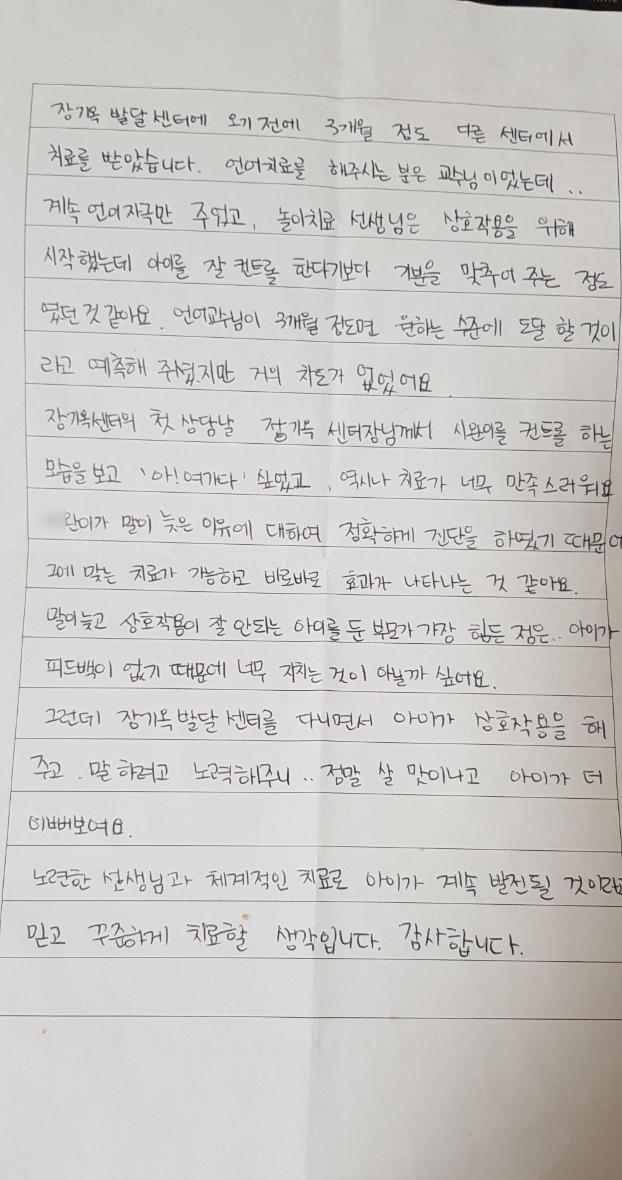 장기옥 발달센터에 오기 전에 3개월 정도 다른 센터에서
치료를 받았습니다. 언어치료를 해주시는 분은 교수님이었는데..
계속 언어자극만 주었고, 놀이치료 선생님은 상호작용을 위해
시작했는데 아이를 잘 컨트롤 한다기보다 기분을 맞추어 주는 정도
였던 것 같아요. 언어교수님이 3개월 정도면 원하는 수준에 도달 할 것이
라고 예측해 주셨지만 거의 차도가 없었어요.
장기옥센터의 첫 상담날 장기옥 센터장님께서 시완이를 컨트롤 하는
모습을 보고 '아! 여기다' 싶었고, 역시나 치료가 너무 만족스러워요
란이가 말이 늦은 이유에 대하여 정확하게 진단을 하였기 때문에
그에 맞는 치료가 가능하고 바로바로 효과가 나타나는 것 같아요.
말이 늦고 상호작용이 잘 안되는 아이를 둔 부모가 가장 힘든 점은.. 아이가
피드백이 없기 때문에 너무 지치는 것이 아닐까 싶어요.
그런데 장기옥 발달센터를 다니면서 아이가 상호작용을 해
주고. 말 하려고 노력해주니.. 정말 살 맛이나고 아이가 더
이뻐보여요.
노련한 선생님과 체계적인 치료로 아이가 계속 발전될 것이라
믿고 꾸준하게 치료할 생각입니다. 감사합니다.